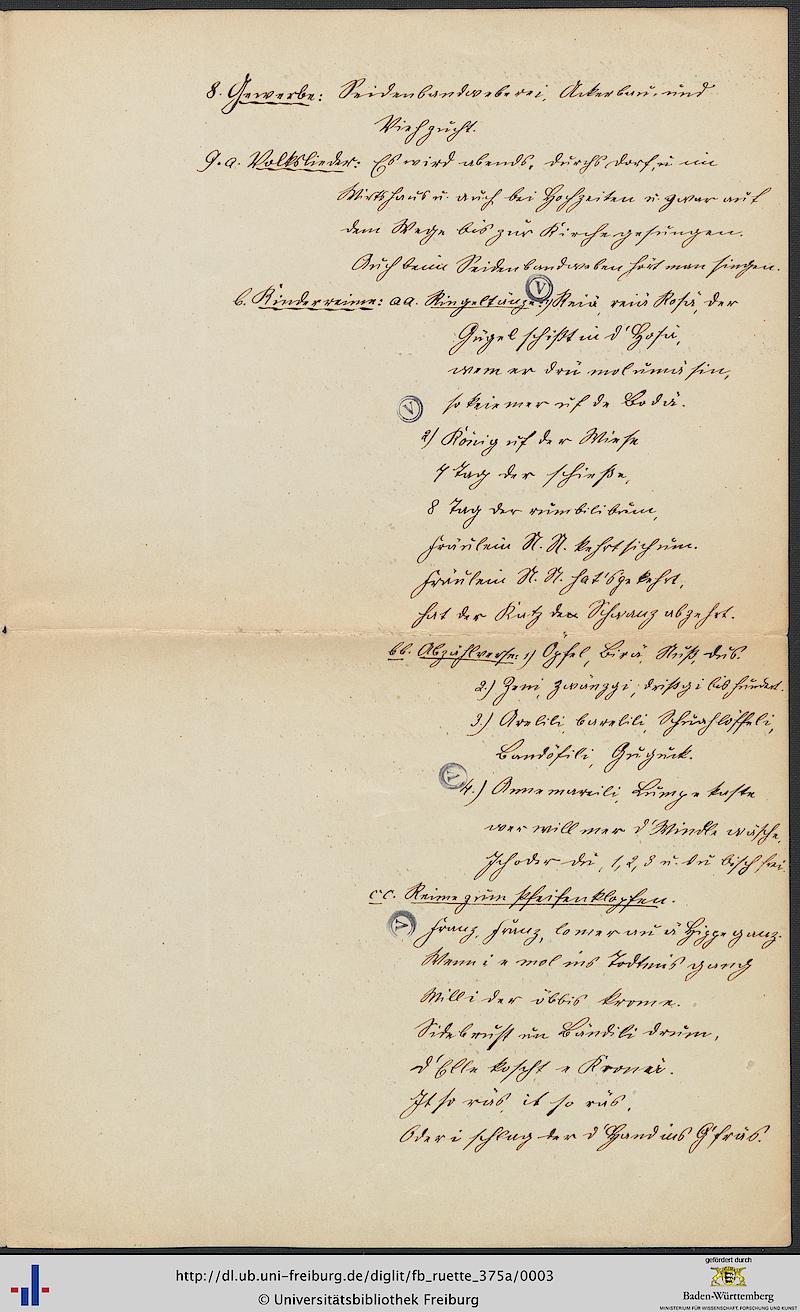 8. Gewerbe: Seidenbandweberei, Ackerbau, und
Viehzucht.
9. a. Volkslieder: Es wird abends, durchs Dorf, u. im
Wirtshaus u. auch bei Hochzeiten u. zwar auf
dem Wege bis zur Kirche gesungen.
Auch beim Seidenbandweben hört man singen.
b. Kinderreime: aa. Ringeltänze: 1) Reiä, reiä Rosä, der
V
Gügel schißt in d'Hosä,
wem er drü mol umä sin,
so keie mer uf de Bodä.
V
2) König uf der Wiese
7 Tag der schieße,
8 Tag der rumbilibum,
Fräulein N. N. kehrt sich um.
Fräulein N. N. hat's gekehrt,
hat der Katz den Schwanz abzehrt.
bb. Abzählverse: 1) Öpfel, Birä, Nuß, dus.
2.) Zeni, zwänzgi, drißgi bis hundert.
3.) Arelili, barelili, Schuahlöffeli,
Bandöfili, Guguck.
V
4.) Annemareili, Lumpekaste
wer will mer d'Windle wäsche,
Ich oder du, 1, 2, 3 u. du bisch frei.
cc. Reime zum Pfeifenklopfen.
V
Franz, Franz, lo mer au ä Hippe ganz.
Wenn i e mol ins Todtmis gang
Will i der öbbis krome.
Sidebrust un Bändili drum,
d'Elle koscht e Kronä.
It so räs, it so räs,
Oder i schlag der d'Hand ins G'fräs.
http://dl.ub.uni-freiburg.de/diglit/fb_ruette_375a/0003
© Universitätsbibliothek Freiburg
gefördert durch
Baden-Württemberg
MINISTERIUM FÜR WISSENSCHAFT, FORSCHUNG UND KUNST